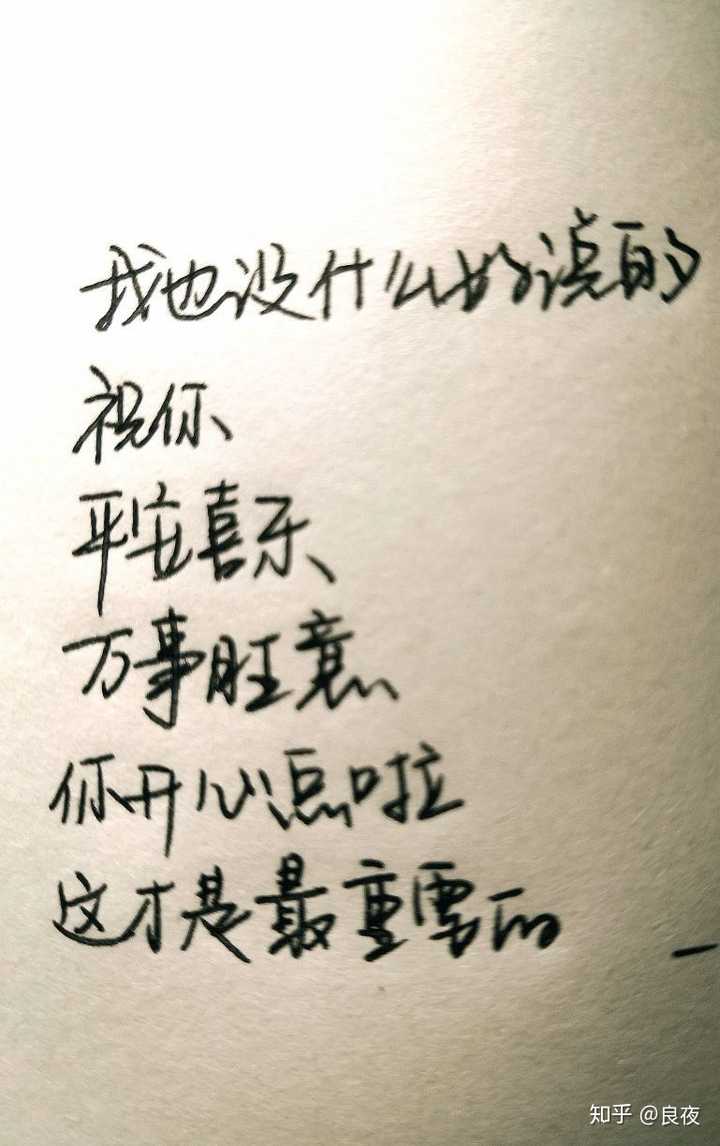 我也没什么好说的
祝你
平安喜乐
万事旺意
你开心点啦
这才是最重要的
知乎 @良夜